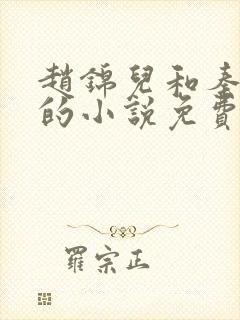 趙錦兒和秦
的小說免費
羅宗正